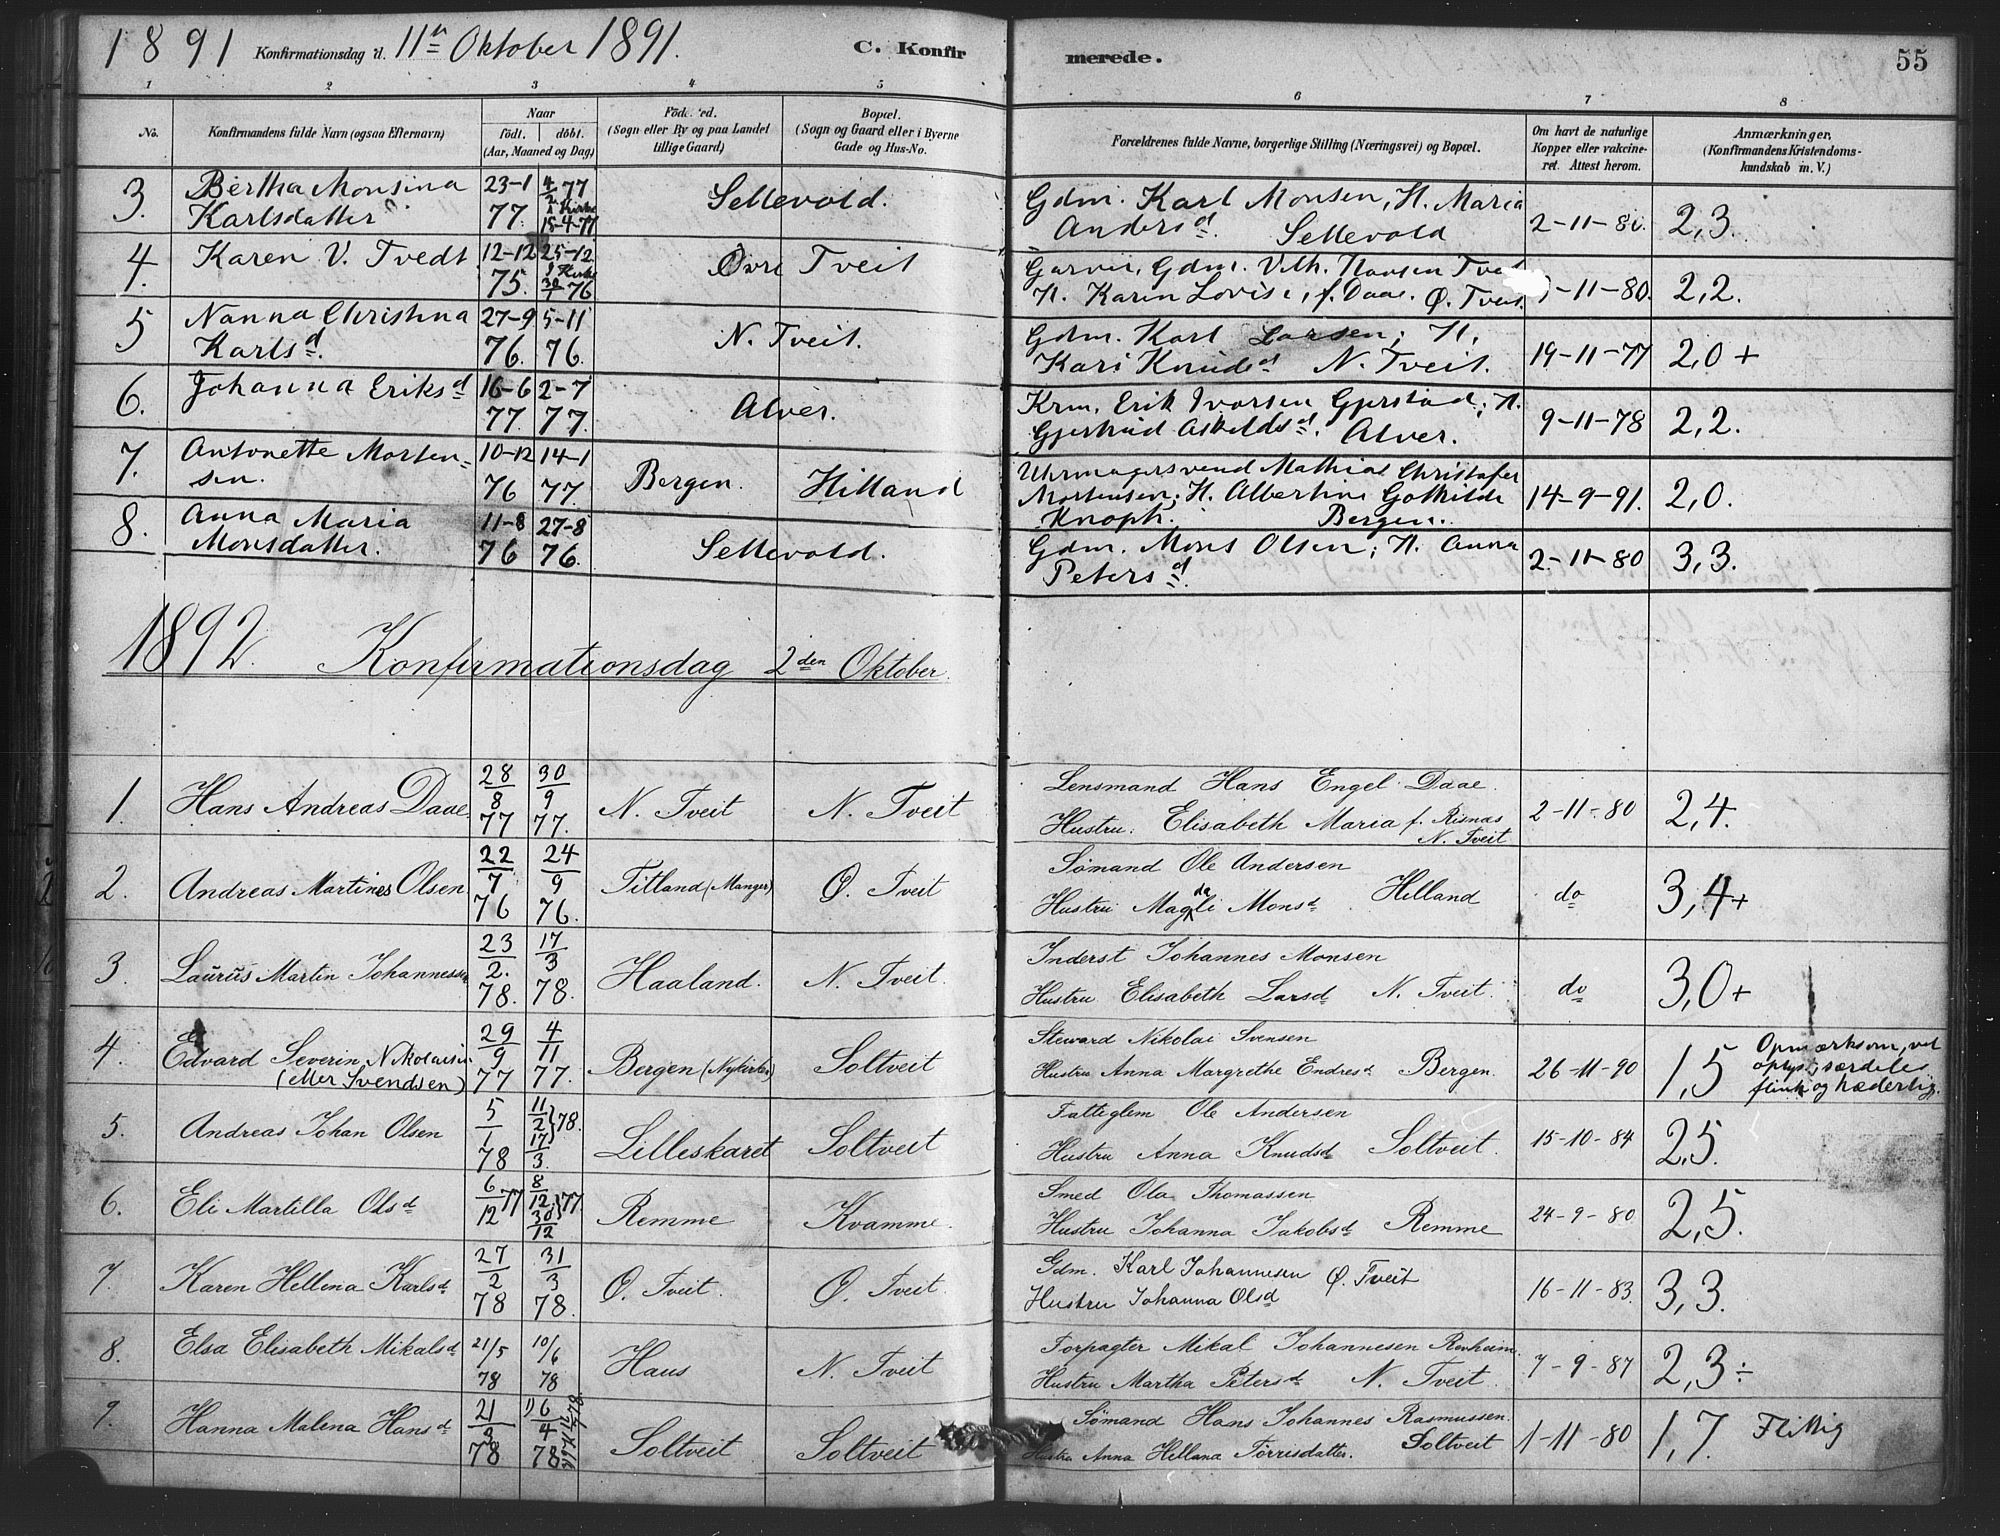 1891 Konfirmationsdag d. 11te Oktober 1891. C. Konfirmerede. 55
1 2 3 4 5 6 7 8
No. Konfirmandens fulde Navn (ogsaa Efternavn) Naar födt. döbt. (Aar, Maaned og Dag) (Sogn eller By og paa Landet tillige Gaard) Bopæl. (Sogn og Gaard eller i Byerne Gade og Hus-No. Forældrenes fulde Navne, borgerlige Stilling (Næringsvei) og Bopæl. Om havt de naturlige Kopper eller vakcineret. Attest herom. Anmærkninger, (Konfirmandens Kristendomskundskab m. V.)
3. Bertha Monsina 23-1 4/2 77 Sellevold. Gdm. Karl Monsen, H. Maria 2-11-80. 2,3.
Karlsdatter 77. i Kirke 15-4-77 Andersd. Sellevold
4. Karen V. Tvedt 12-12 25-12 Övre Tveit Garver, Gdm. Vilh. Hansen -11-80. 2,2.
75. i Kirke 30/1 76 H. Karen Lovise, f. Daae. Ø. Tveit.
5 Nanna Christina 27-9 5-11 N. Tveit. Gdm. Karl Larsen; H. 19-11-77 2,0+
Karlsd. 76. 76. Kari Knudsd N. Tveit.
6. Johanna Eriksd 16-6 2-7 Alver. Krm. Erik Ivarsen Gjerstad; H. 9-11-78 2,2.
77. 77. Gjertrud Askeldsd. Alver.
7. Antonette Morten- 10-12 14-1 Bergen. Hilland Uhrmagersvend Mathias Christofer 14-9-91. 2,0.
sen. 76 77. Mortensen; H. Albertine Gothilde
Knoph. Bergen.
8. Anna Maria 11-8 27-8 Sellevold. Gdm. Mons Olsen; H. Anna 2-11-80 3,3.
Monsdatter. 76 76. Petersd.
1892. Konfirmationsdag 2den Oktober.
1. Hans Andreas Daae. 28/8 77 30/9 77. N. Tveit N. Tveit Lensmand Hans Engel Daae. 2-11-80 2,4.
Hustru. Elisabeth Maria f. Risnas
N. Tveit
2. Andreas Martines Olsen 22/7 76 24/9 76. Titland (Manger) Ø. Tveit Sømand Ole Andersen do 3,4+
Hustru Magdali Monsd Helland
3 Laurus Martin Johannessen 23/2. 78. 17/3 78. Haaland. N. Tveit. Inderst Johannes Monsen do 3,0+
Hustru Elisabeth Larsd N. Tveit.
4. Edvard Severin Nikolaisen 29/9 77 4/11 77. Bergen (Nykirken) Soltveit Steward Nikolai Svensen 26-11-90 1,5 Opmærksom, vel
(eller Svendsen) Hustru Anna Margrethe Endresd Bergen. oplyst, særdeles
flink og hæderlig.
5. Andreas Johan Olsen 5/1 78 11/2 17/3. } 78. Lilleskaret Soltveit Fattiglem Ole Andersen 15-10-84 2,5.
Hustru Anna Knudsd Soltveit.
6. Eli Martilla Olsd 6/12 77 8/12 30/12 } 77. Remme Kvamme. Smed Ola Thomassen 24-9-80 2,5.
Hustru Johanna Jakobsd Remme
7. Karen Hellena Karlsd 27/2 78 31/3 78. Ø. Tveit. Ø. Tveit. Gdm. Karl Johannesen Ø. Tveit 16-11-83. 3,3.
Hustru Johanna Olsd
8. Elsa Elisabeth Mikalsd 21/5 78 10/6 78 Haus N. Tveit Forpagter Mikal Johannesen Revheim. 7-9-87 2,3÷
Hustru Martha Petersd N. Tveit
9. Hanna Malena Hansd 21/3 78 6/4 78 Soltveit Soltveit Sømand Hans Johannes Rasmussen. 1-11-80 1,7 Flittig
Hustru Anna Hellana Tørrisdatter. Soltveit